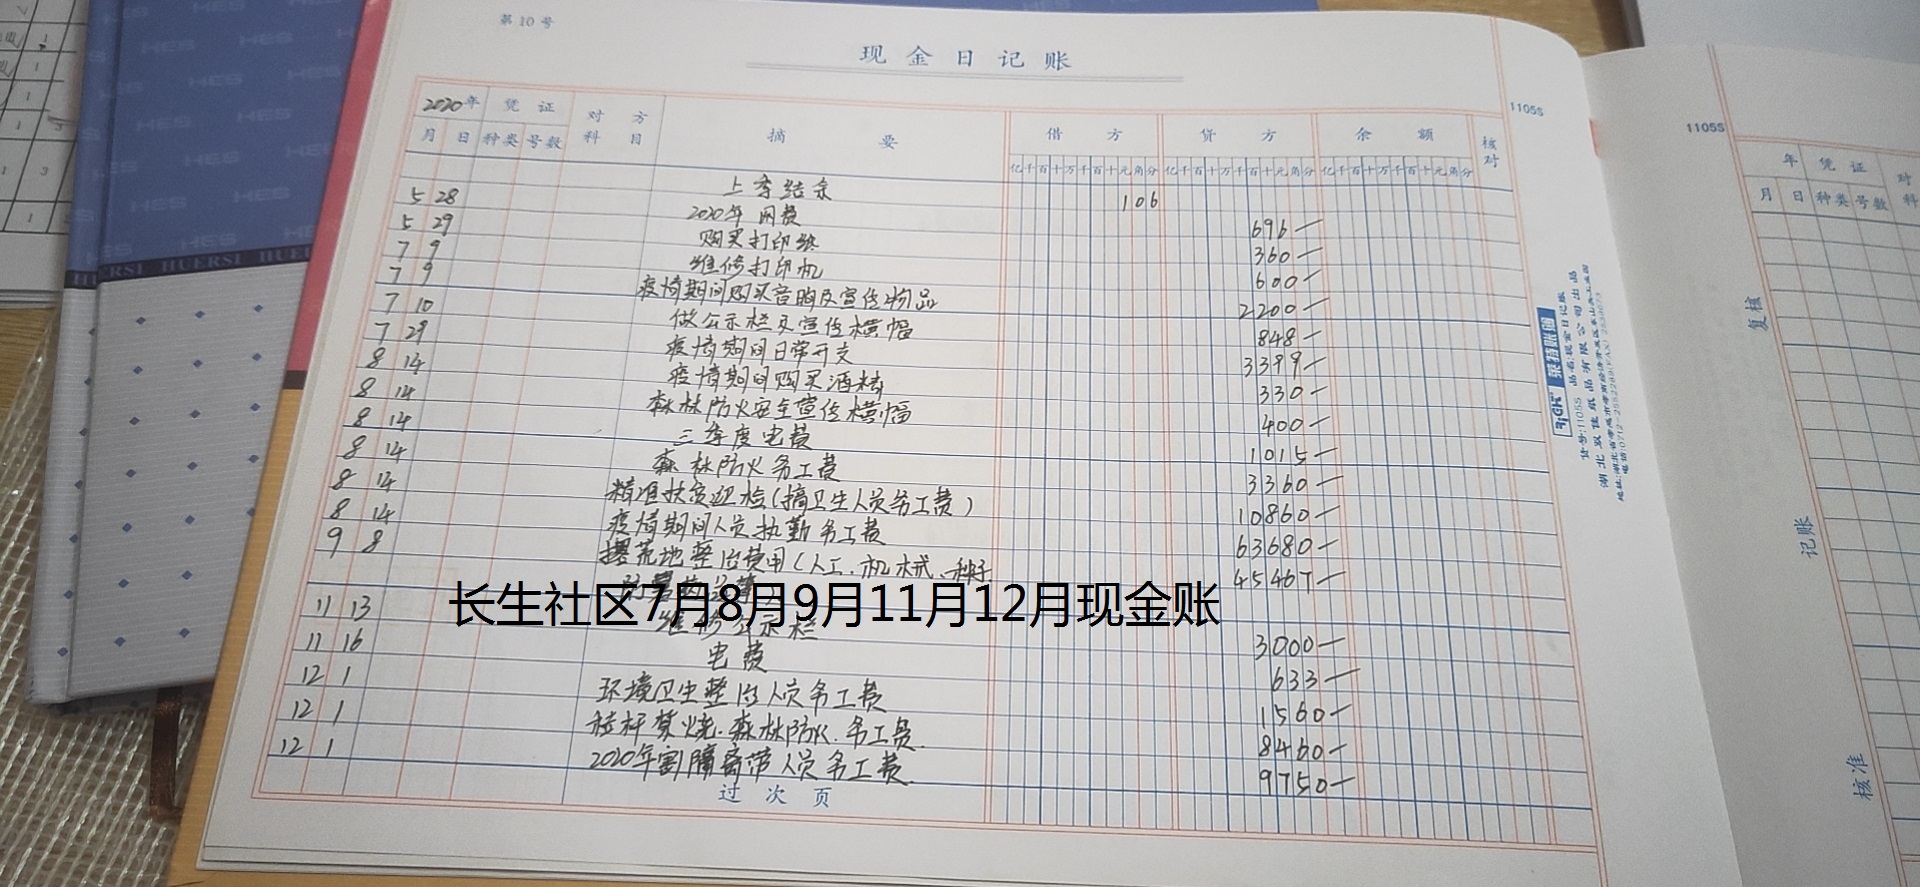 第 10 号
现 金 日 记 账
1105S
1105S
2020年 凭 证 对 方 摘 要 借 方 贷 方 余 额 核对
月 日 种类 号数 科 目 亿千百十万千百十元角分 亿千百十万千百十元角分 亿千百十万千百十元角分
上季结余 106
5 28 2020年网费 696—
5 29 购买打印纸 360—
7 9 维修打印机 600—
7 9 疫情期间购买音响及宣传物品 2200—
7 10 做公示栏及宣传横幅 848—
7 29 疫情期间日常开支 3399—
8 14 疫情期间购买酒精 330—
8 14 森林防火安全宣传横幅 400—
8 14 三季度电费 1015—
8 14 森林防火务工费 3360—
8 14 精准扶贫迎检(搞卫生人员务工费) 10860—
8 14 疫情期间人员执勤务工费 63680—
9 8 撂荒地整治费用(人工、机械、种子 45467—
长生社区7月8月9月11月12月现金账
11 13 维修公示栏 3000—
11 16 电费 633—
12 1 环境卫生整治人员务工费 1560—
12 1 秸秆焚烧、森林防火、务工费 8460—
12 1 2020年割隔离带人员务工费 9750—
过 次 页
莱特账册
货号:1105S 品名:现金日记账
湖北双佳纸品有限公司出品
年 凭 证 对
月 日 种类 号数 科
复核
记账
核准
HES
HES
HUERSI HUERSI